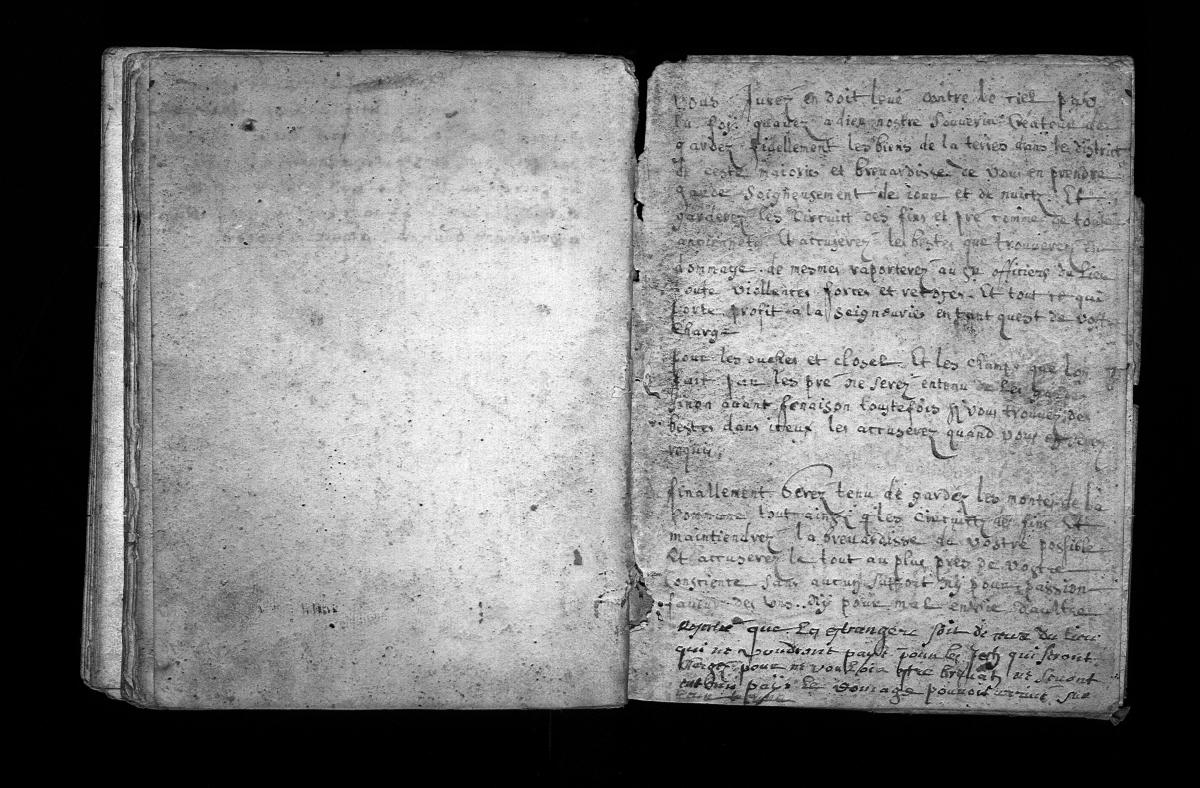 vous Jurez en doit leué contre le ciel par
la foÿ quauez a dieu nostre Souverain Createur de
gardez fidellement les biens de la terres dans le district
de ceste mairies et breuardisse ce vous en prendre
garde Soigneusement de iour et de nuict Et
garderez les Circuitt des fins et pre comme de toute
anciennete Et accuserez les bestes que trouuerez en
dommage de mesmes raporterez au Sr officiers du lieu
toute viollences forces et Et tout ce qui
porte profit a la Seigneuries en tant quest de vostre
Charge
pour les ouches et closel Et les champs que lon
fait par les pre ne Serez entenu de les garder
sinon auant fenaison toutefois sy vous trouuez des
bestes dans iceux les accuserez quand vous en serez
requis
finallement Serez tenu de gardez les montes de la
commune tout ainsy q les Circuitt des fins Et
maintiendrez la breuardisse de vostre possible
Et accuserez le tout au plus pres de vostre
Consciente Sans aucun Suport Ny pour passion
faueur des vns Ny pour mal enuie daultre
que les estrangers soit de du lieu
qui ne voudront paÿé pour les qui seront
pour ne vouloir estre breuatz ne seront
paÿé le domage pouuoit sur